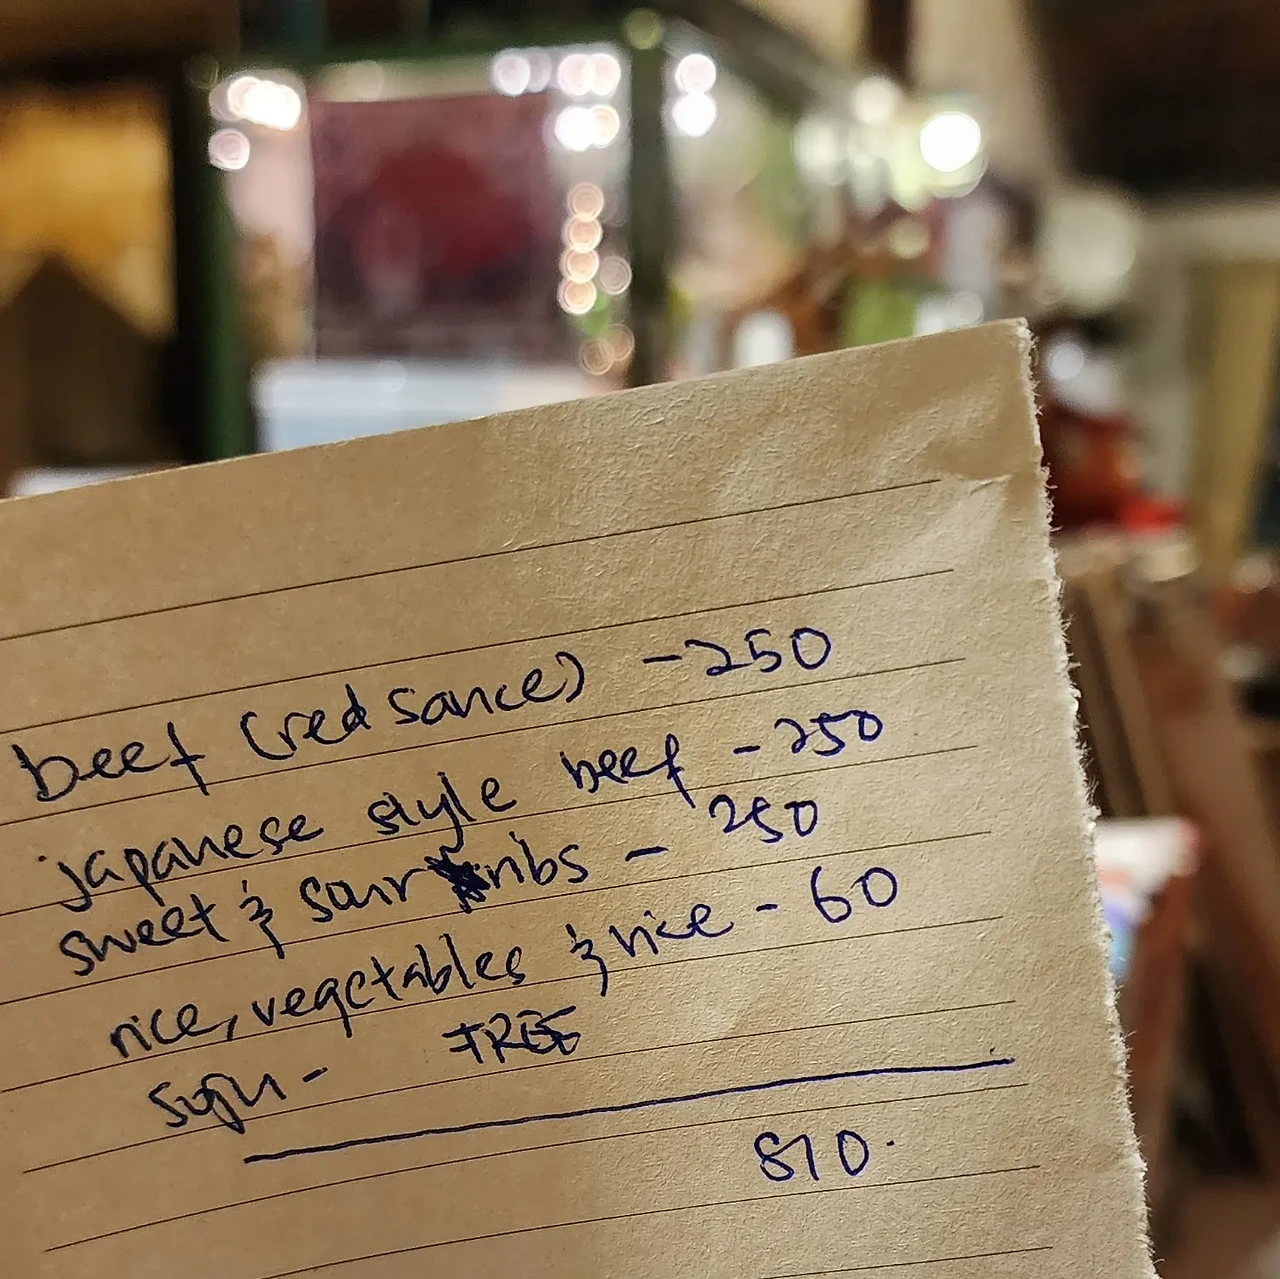 beef (red sauce) - 250
japanese style beef - 250
sweet & sour ribs - 250
rice, vegetables & rice - 60
soju - FREE
810.